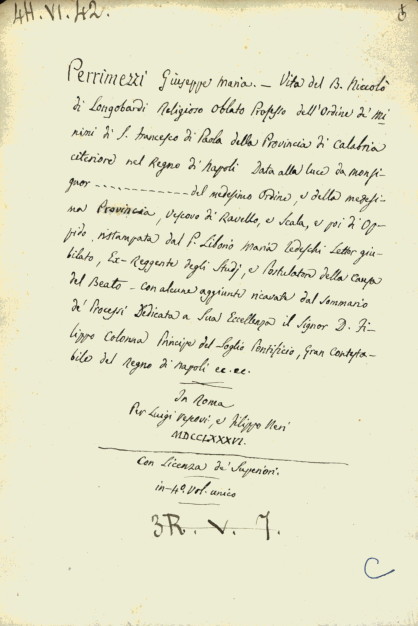 4H. VI. 42.
Perrimezzi Giuseppe Maria. — Vita del B. Niccolò
di Longobardi Religioso Oblato Professo dell'Ordine de' Mi
nimi di S. Francesco di Paola della Provincia di Calabria
citeriore nel Regno di Napoli Data alla luce da monsi-
gnor ------------ del medesimo Ordine, e della medesi-
ma Provincia, Vescovo di Ravello, e Scala, e poi di Op-
pido, ristampata dal P. Liborio Maria Tedeschi Lettor giu-
bilato, Ex-Reggente degli Studj, e Postulatore della Causa
del Beato - con alcune aggiunte ricavate dal Sommario
de' Processi Dedicata a Sua Eccellenza il Signor D. Fi-
lippo Colonna Principe del Soglio Pontificio, Gran Contesta-
bile del Regno di Napoli ec. ec.
In Roma
Per Luigi Vescovi, e Filippo Neri
MDCCLXXXVI.
Con Licenza de' Superiori.
in-4°. Vol. unico
3R. V. 7.
C